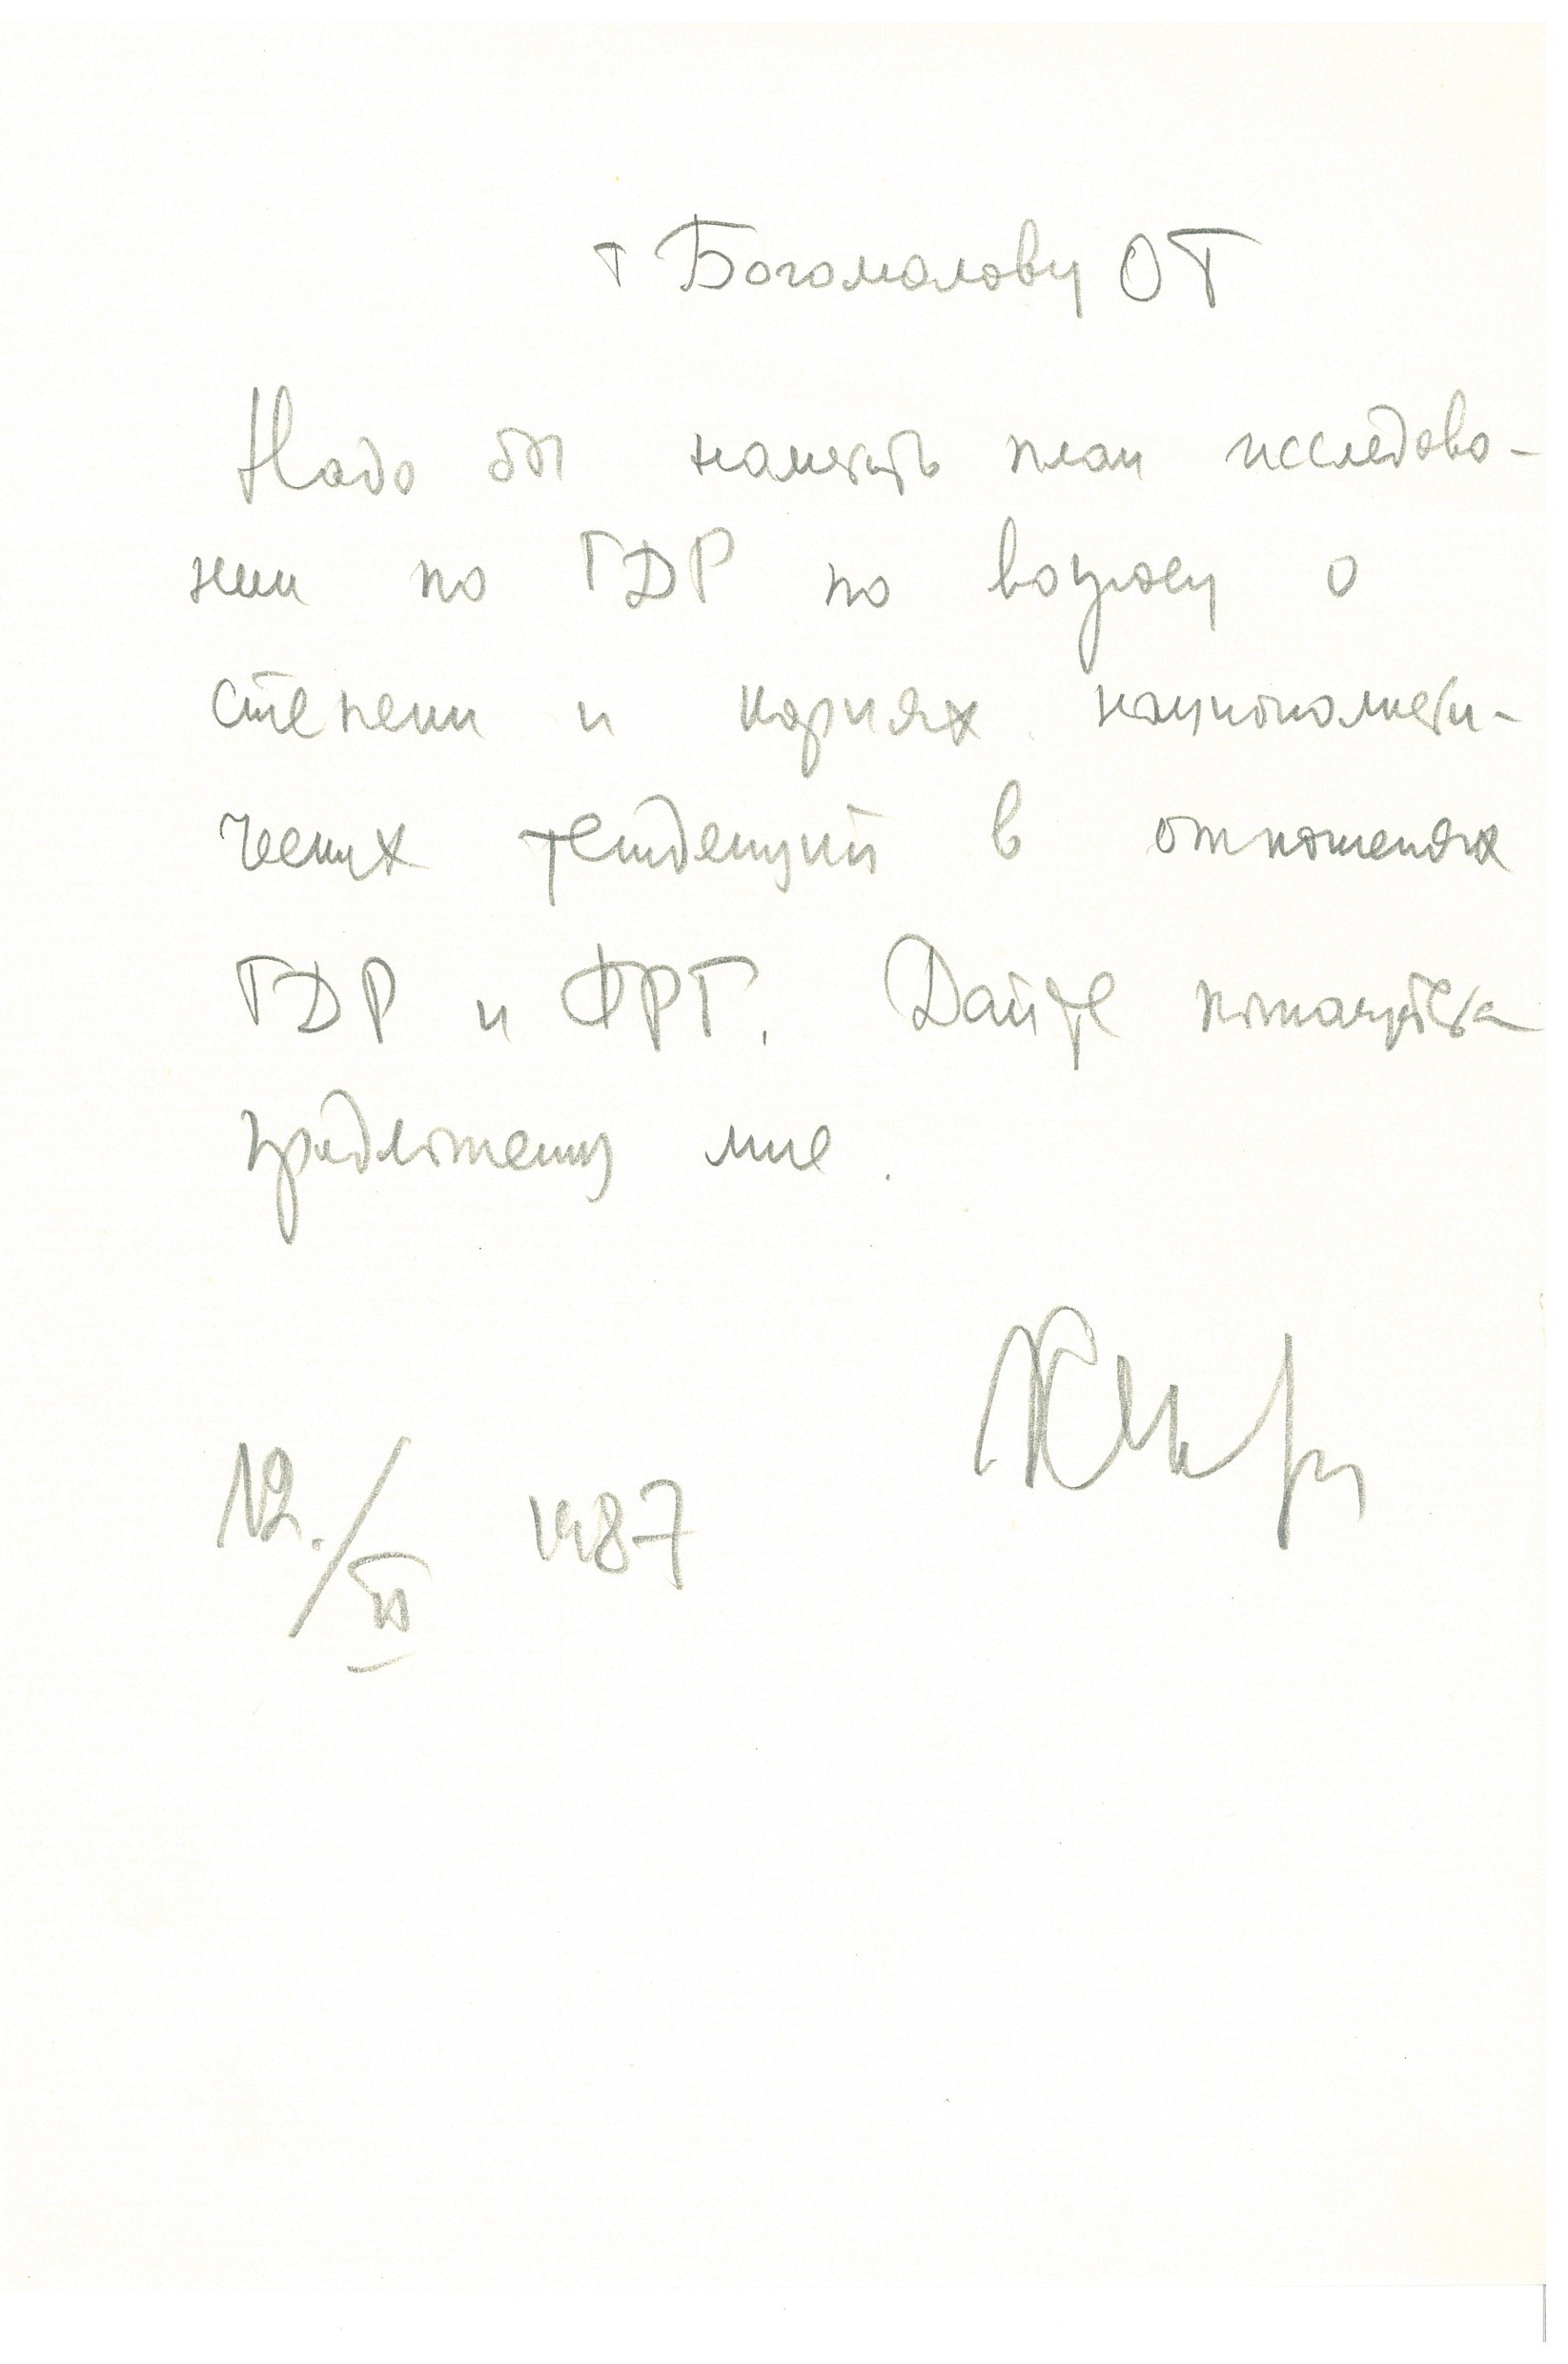 т Богомолову ОТ
Надо бы наметить план исследова-
нии по ГДР по вопросу о
степени и корнях националисти-
ческих тенденций в отношениях
ГДР и ФРГ. Дайте пожалуйста
предложения мне.
12./ 1987